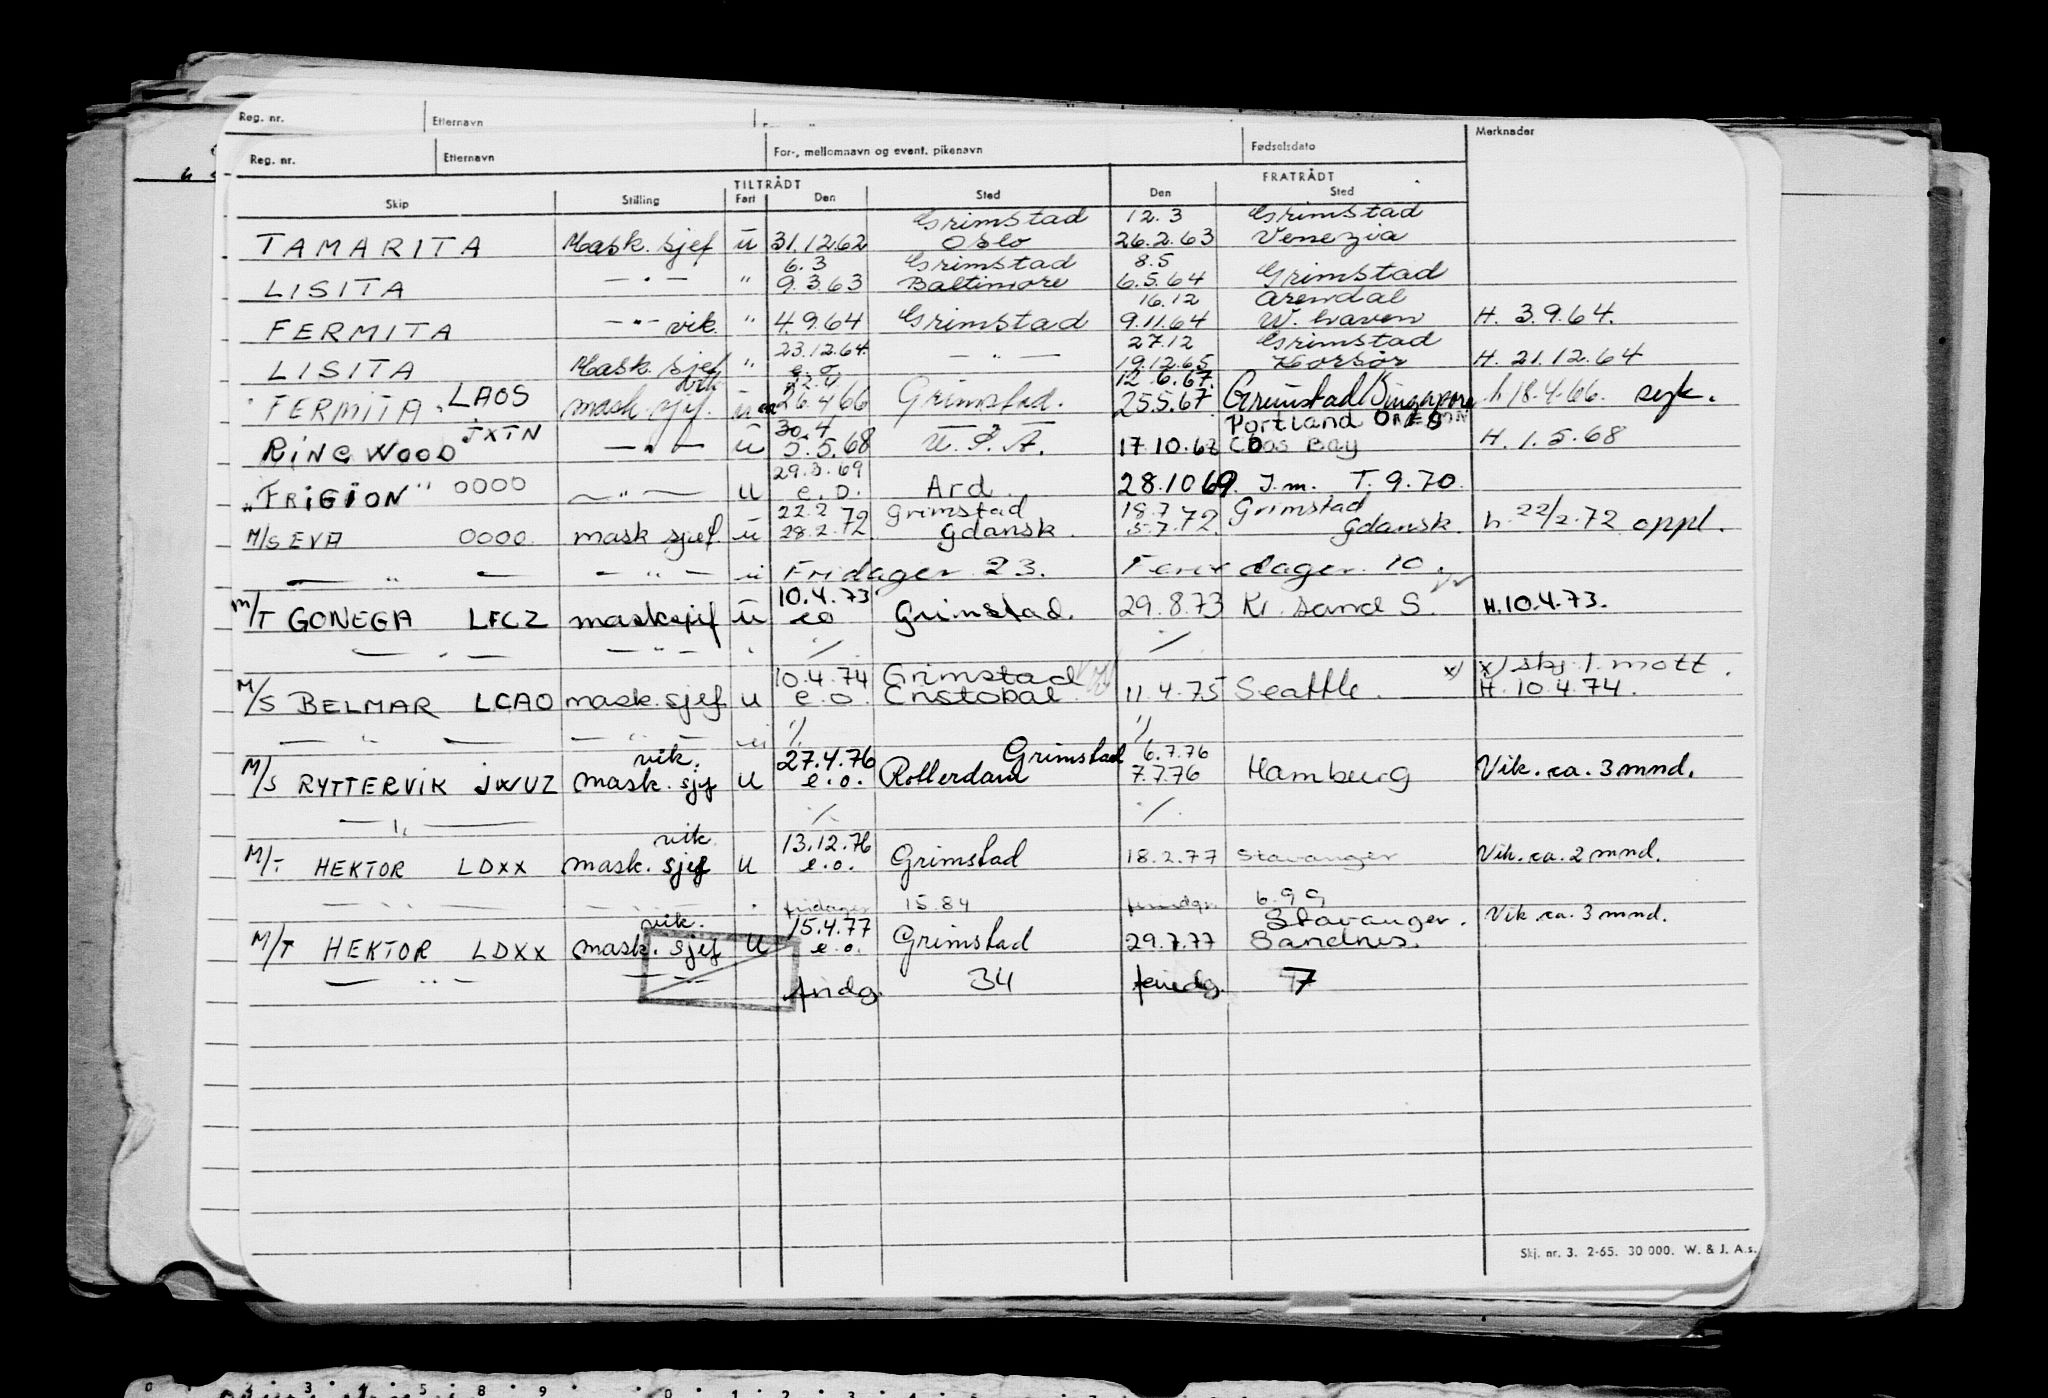 Reg. nr. Etternavn
Merknader
Reg. nr. Etternavn For-, mellomnavn og event. pikenavn Fødselsdato
TILTRÅDT FRATRÅDT
Skip Stilling Fart Den Sted Den Sted
Grimstad 12.3 Grimstad
TAMARITA Mask. sjef u 31.12.62 Oslo 26.2.63 Venezia
6.3 Grimstad 8.5
LISITA — " — " 9.3.63 Baltimore 6.5.64 Grimstad
16.12 Arendal
FERMITA — " — vik. " 4.9.64 Grimstad 9.11.64 W. H. 3.9.64.
23.12.64 27.12 Grimstad
LISITA Mask. sjef " e.o. — " — 19.12.65 Korsør H. 21.12.64
vik 22.4 12.6.67.
"FERMITA" LAOS mask. sjef. u 26.4.66 Grimstad. 25.5.67 Grimstad/Singapore h 18.4.66. syk.
30.4 Portland OREGON
RINGWOOD JXTN — " — u 5.5.68 U.S.A. 17.10.68 COOS Bay H. 1.5.68
29.3.69
"FRIGION" OOOO — " — u e.o. Ard. 28.10 69. J.m. T. 9.70.
22.2 Grimstad 18.7 Grimstad
M/S EVA OOOO. mask sjef u 28.2.72. Gdansk. 5.7.72. Gdansk. h. 22/2.72 oppl.
— " — — " — u Fridager 23. Feriedager. 10.
10.4.73
M/T GONEGA LFCZ masksjef u eo Grimstad. 29.8.73 Kr. sand S. H.10.4.73.
— " — — " — " ./. ./.
10.4.74 Grimstad x) x) skj. 1. mott.
M/S BELMAR LCAO mask. sjef u e.o. Cristobal. 11.4.75 Seattle. H. 10.4.74.
— " — — " — ./. ./.
vik. 27.4.76 Grimstad 6.7.76
M/S RYTTERVIK JWUZ mask. sjef u e.o. Rotterdam 7.7.76 Hamburg Vik. ca. 3 mnd.
— " — ./. ./.
vik. 13.12.76
M/T HEKTOR LDXX mask. sjef u e.o. Grimstad 18.2.77 Stavanger Vik. ca. 2 mnd.
— " — — " — " fridager 15.84 feriedgr. 6.99
vik. 15.4.77 Stavanger. Vik ca. 3 mnd.
M/T HEKTOR LDXX mask. sjef u e.o. Grimstad 29.7.77 Sandnes.
— " — — " — fridg. 34 feriedg. 7
Skj. nr. 3. 2-65. 30 000. W. & J. A.s.